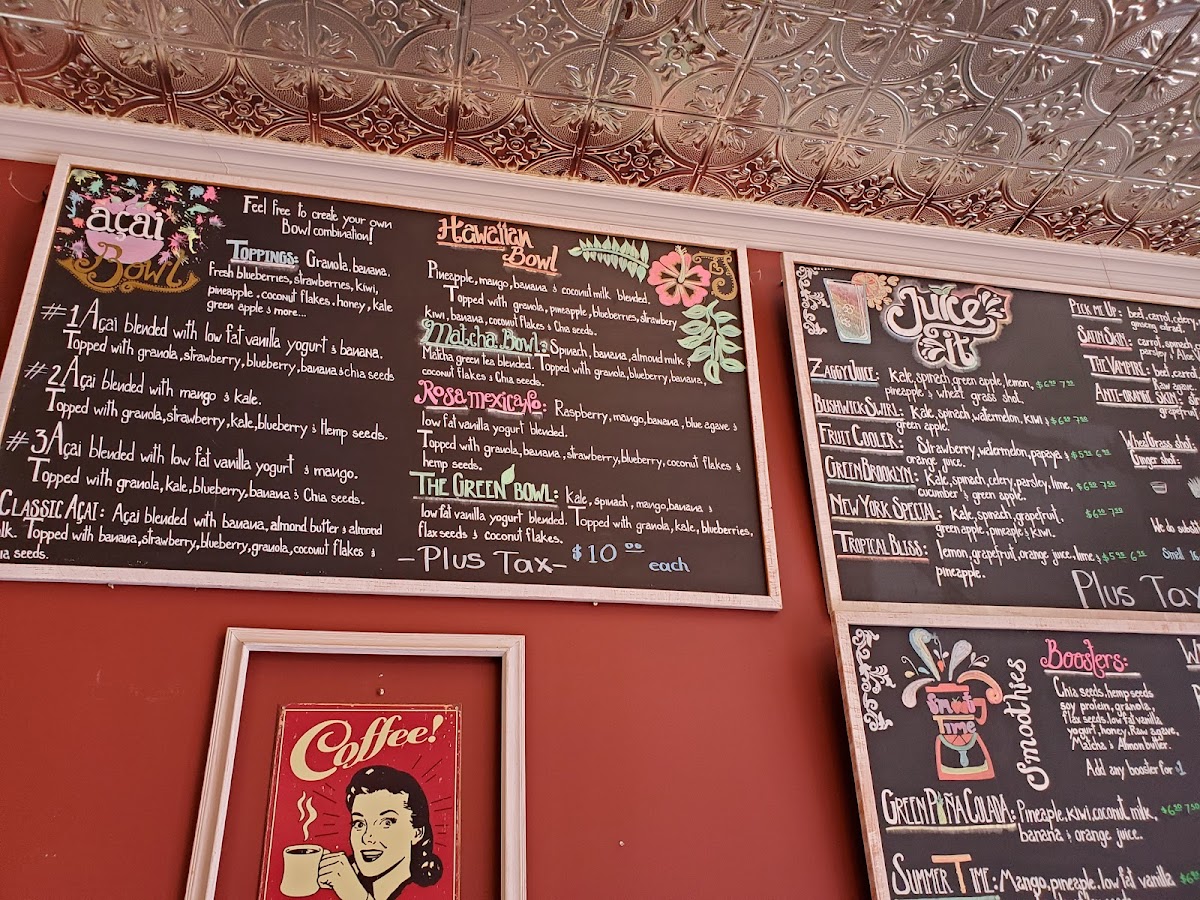 açai
Bowl
Feel free to create your own
Bowl combination!
Toppings: Granola, banana,
fresh blueberries, strawberries, kiwi,
pineapple, coconut flakes, honey, kale
green apple & more...
#1 Açai blended with low fat vanilla yogurt & banana.
Topped with granola, strawberry, blueberry, banana & chia seeds
#2 Açai blended with mango & kale.
Topped with granola, strawberry, kale, blueberry & Hemp seeds.
#3 Açai blended with low fat vanilla yogurt & mango.
Topped with granola, kale, blueberry, banana & Chia seeds.
Classic Açai: Açai blended with banana, almond butter & almond
lk. Topped with banana, strawberry, blueberry, granola, coconut flakes &
ia seeds.
Hawaiian
Bowl
Pineapple, mango, banana & coconut milk blended.
Topped with granola, pineapple, blueberries, strawbery
kiwi, banana, coconut flakes & Chia seeds.
Matcha Bowl: Spinach, banana, almond milk &
Matcha green tea blended. Topped with granola, blueberry, banana,
coconut flakes & Chia seeds.
Rosa Mexicano: Raspberry, mango, banana, blue agave &
low fat vanilla yogurt blended.
Topped with granola, banana, strawberry, blueberry, coconut flakes &
hemp seeds.
The Green Bowl: Kale, spinach, mango, banana &
low fat vanilla yogurt blended. Topped with granola, kale, blueberries,
flax seeds & coconut flakes.
-Plus Tax- $10 00 each
Juice
it
Zaggy Juice: Kale, spinach, green apple, lemon, $6 00 7 00
pineapple & wheat grass shot.
Bushwick Swirl: Kale, spinach, watermelon, kiwi & $6 00 7 00
green apple.
Fruit Cooler: Strawberry, watermelon, papaya & $5 00 6 00
orange juice.
Green Brooklyn: Kale, spinach, celery, parsley, lime, $6 00 7 00
cucumber & green apple.
New York Special: Kale, spinach, grapefruit, $6 00 7 00
green apple, pineapple & kiwi.
Tropical Bliss: lemon, grapefruit, orange juice, lime & $5 00 6 00
pineapple.
Pick me Up: beet, carrot, celery
ginseng
Satin Skin: carrot, spinach
parsley &
The Vampire: beet, carrot,
Raw agave
grapefruit
WheatGrass shot
Ginger shot:
We do
Small 16
Plus Tax
Smooth
Time
Smoothies
Boosters:
Chia seeds, hemp seeds
soy protein, granola,
flax seeds, low fat vanilla
yogurt, honey, Raw agave,
Matcha & Almon butter.
Add any booster for $1
Green Piña Colada: Pineapple, kiwi, coconut milk,
banana & orange juice.
Summer Time: Mango, pineapple, low fat vanilla
Coffee!